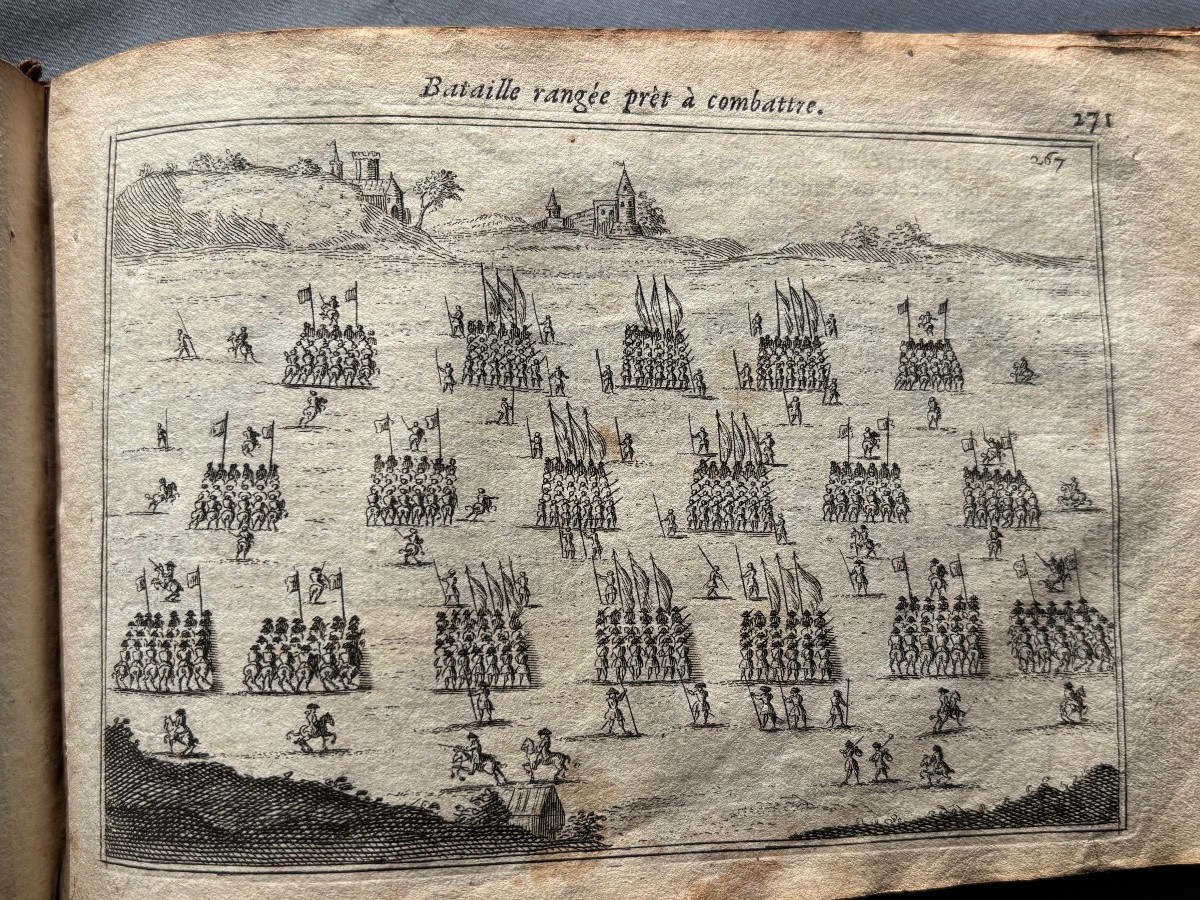 Bataille rangée prèt à combattre.
271
267